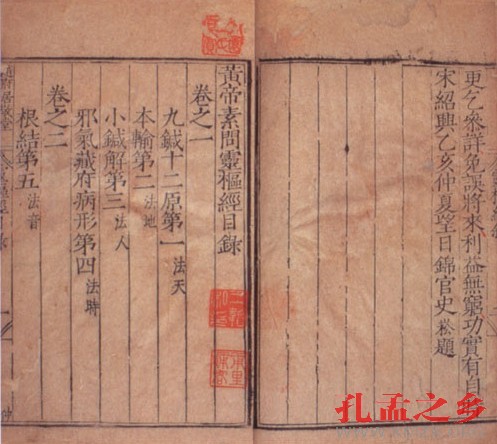 更乞叅詳免誤將來利益無窮功實有自
宋紹興乙亥仲夏望日錦官史崧題
黃帝素問靈樞經目錄
卷之一
九鍼十二原第一 法天
本輸第二 法地
小鍼解第三 法人
邪氣藏府病形第四 法時
卷之二
根結第五 法音
孔孟之乡